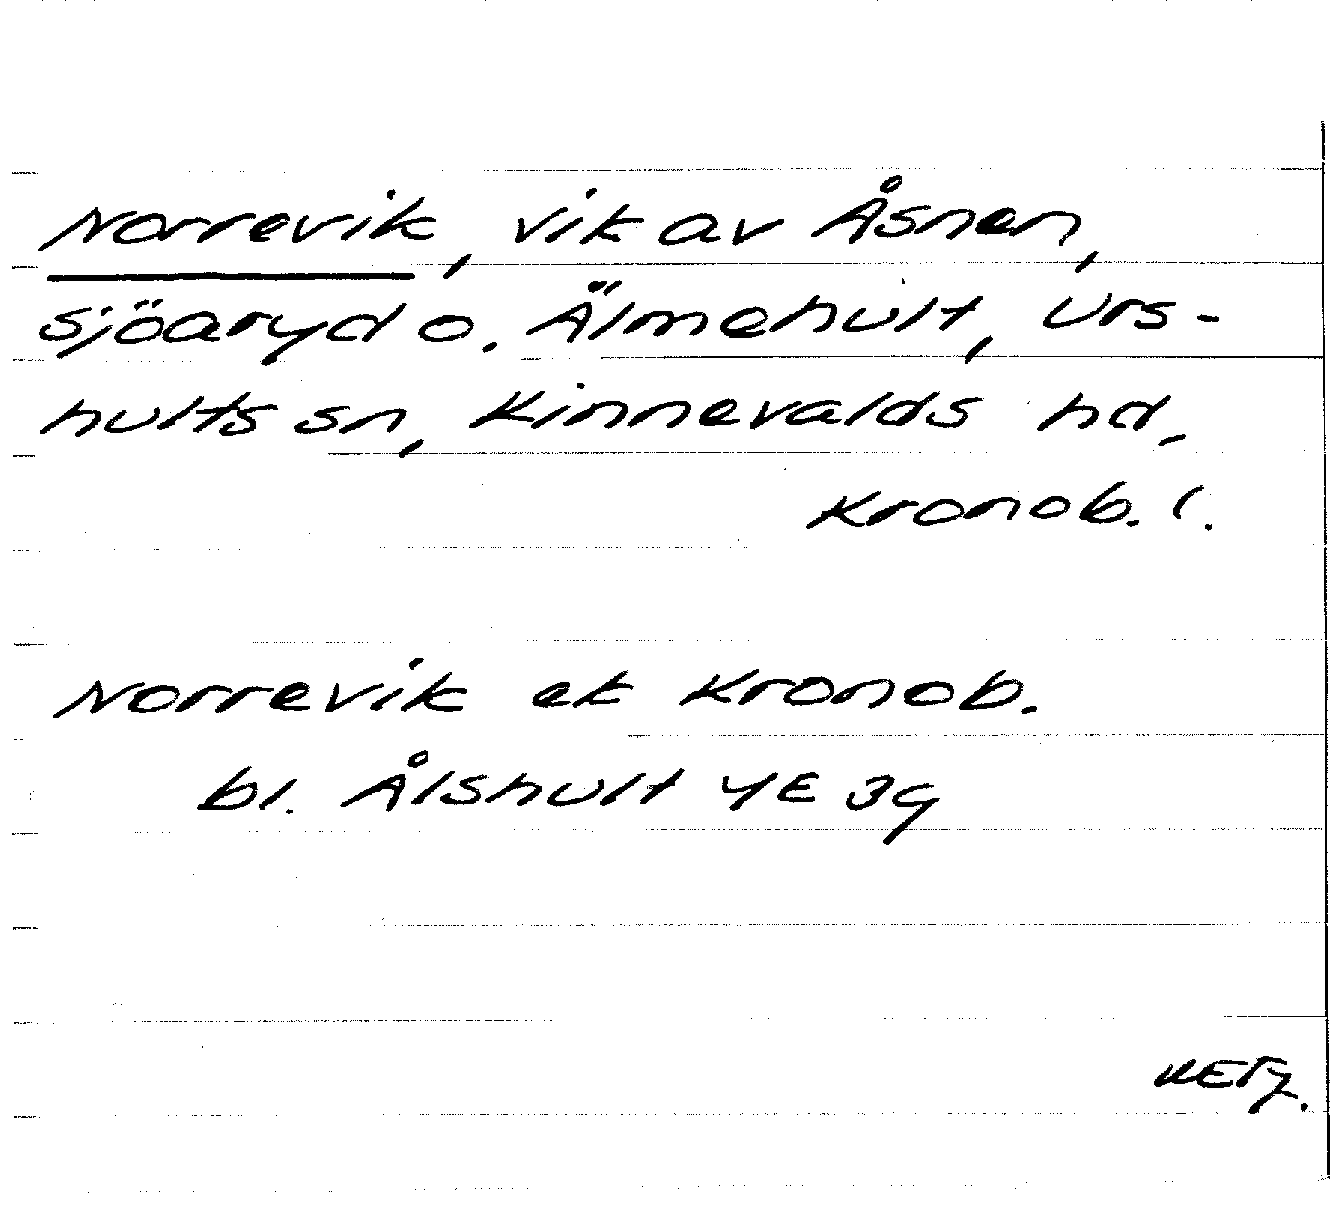 Norrevik, vik av Åsnen,
sjöaryd o. Älmehult, Urs-
hults sn, Kinnevalds hd,
Kronob. l.
Norrevik ek Kronob.
bl. Ålshult 4E 3g